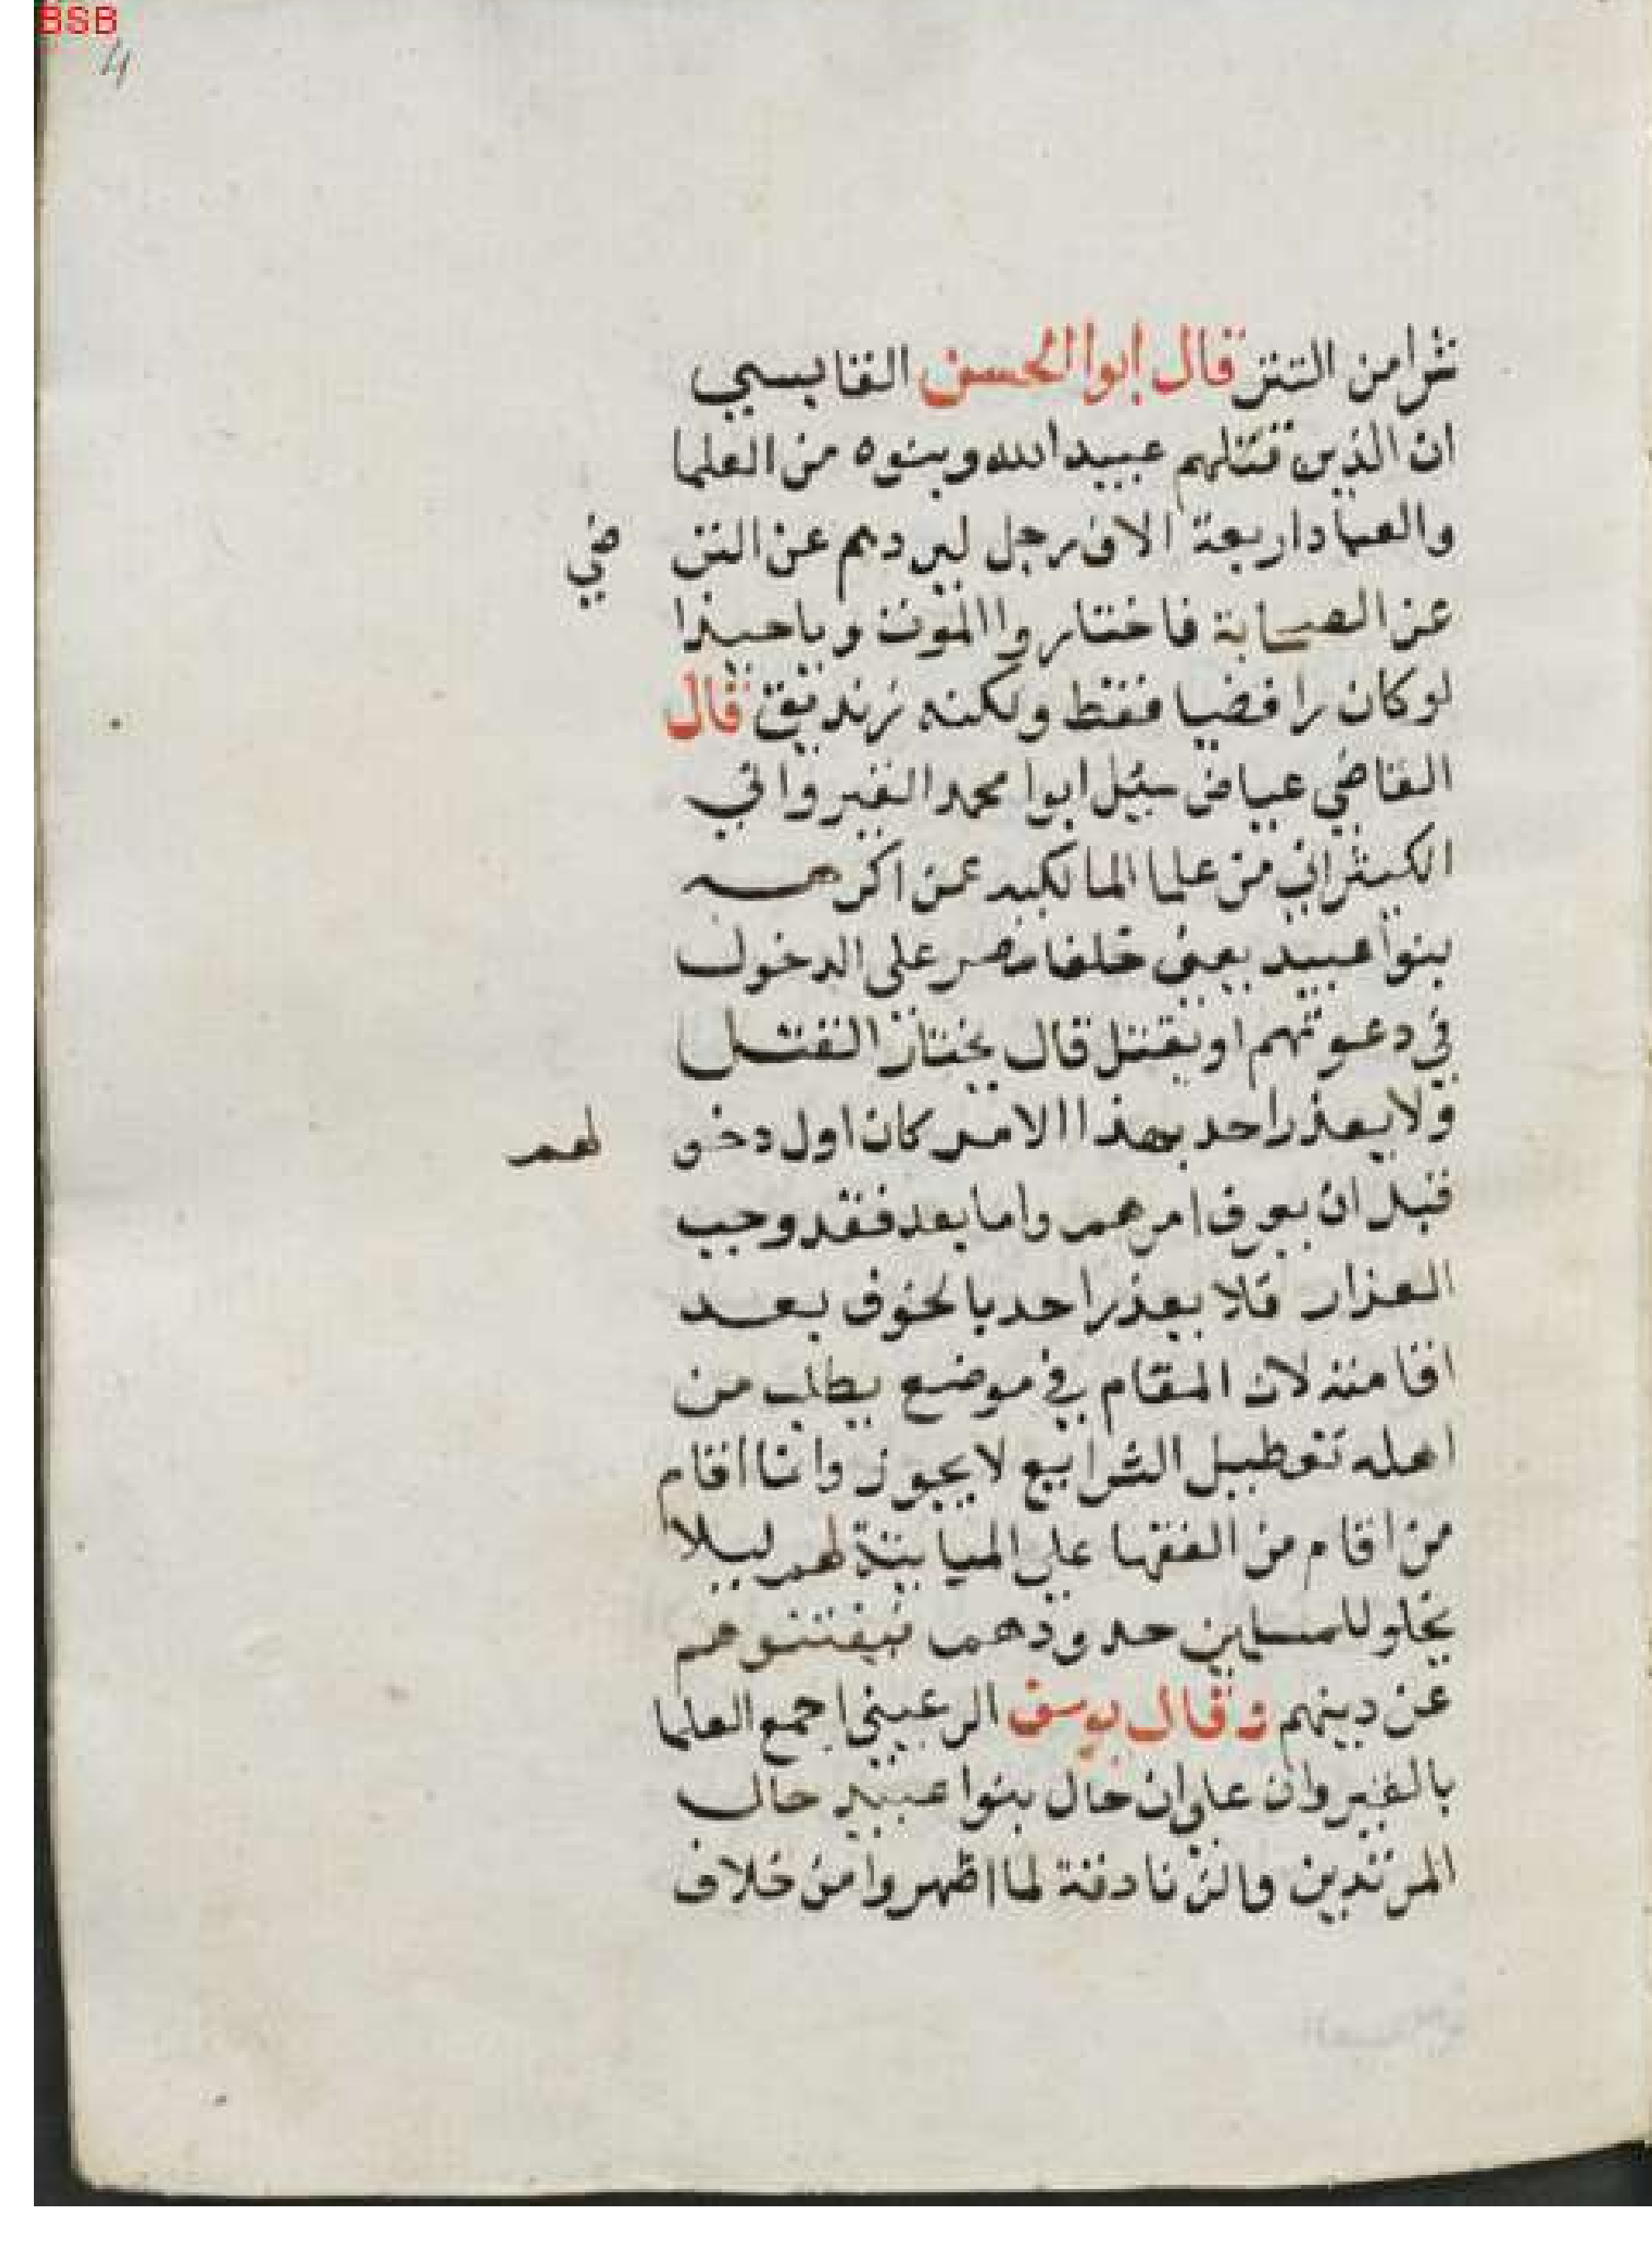 BSB
4
شرا من التتر قال ابوا الحسن القابسي
ان الذين قتلهم عبيد الله وبنوه من العلما
والعباد اربعة الاف رجل ليردهم عن التر ضي
عن الصحابة فاختاروا الموت وياحبذا
لو كان رافضيا فقط ولكنه زنديق قال
القاضي عياض سئل ابوا محمد القيرواني
الكيثراني من علما المالكيه عمن اكرهه
بنوا عبيد يعني خلفا مصر على الدخول
في دعوتهم او يقتل قال يختار القتل
ولا يعذر احد بهذا الامر كان اول دخو لهم
قبل ان يعرف امرهم واما بعد فقد وجب
العذار فلا يعذر احد بالخوف بعد
اقامته لان المقام في موضع يطلب من
اهله تعطيل الشرايع لا يجوز وانا اقام
من اقام من الفقها على المباينة لهم ليلا
يخلو للمسلمين حدودهم فيفتنوهم
عن دينهم وقال يوسف الرعيني اجمع العلما
بالقيروان على ان حال بنوا عبيد حال
المرتدين والزنادقة لما اظهروا من خلاف